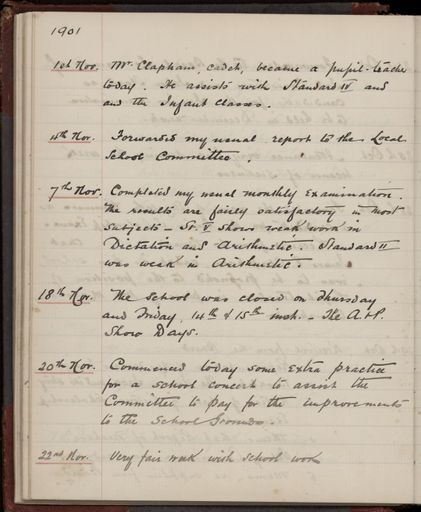 1901
1st Nov. Mr. Clapham, cadet, became a pupil-teacher
today. He assists with Standard IV and
and the Infant Classes.
4th Nov. Forwarded my usual report to the Local
School Committee.
7th Nov. Completed my usual monthly Examination.
The results are fairly satisfactory in most
subjects – St. V shows weak work in
Dictation and Arithmetic. Standard II
was weak in Arithmetic.
18th Nov. The School was closed on Thursday
and Friday, 14th & 15th inst. – The A. & P.
Show Days.
20th Nov. Commenced today some extra practice
for a school concert to assist the
Committee to pay for the improvements
to the School Grounds.
22nd Nov. Very fair week with school work